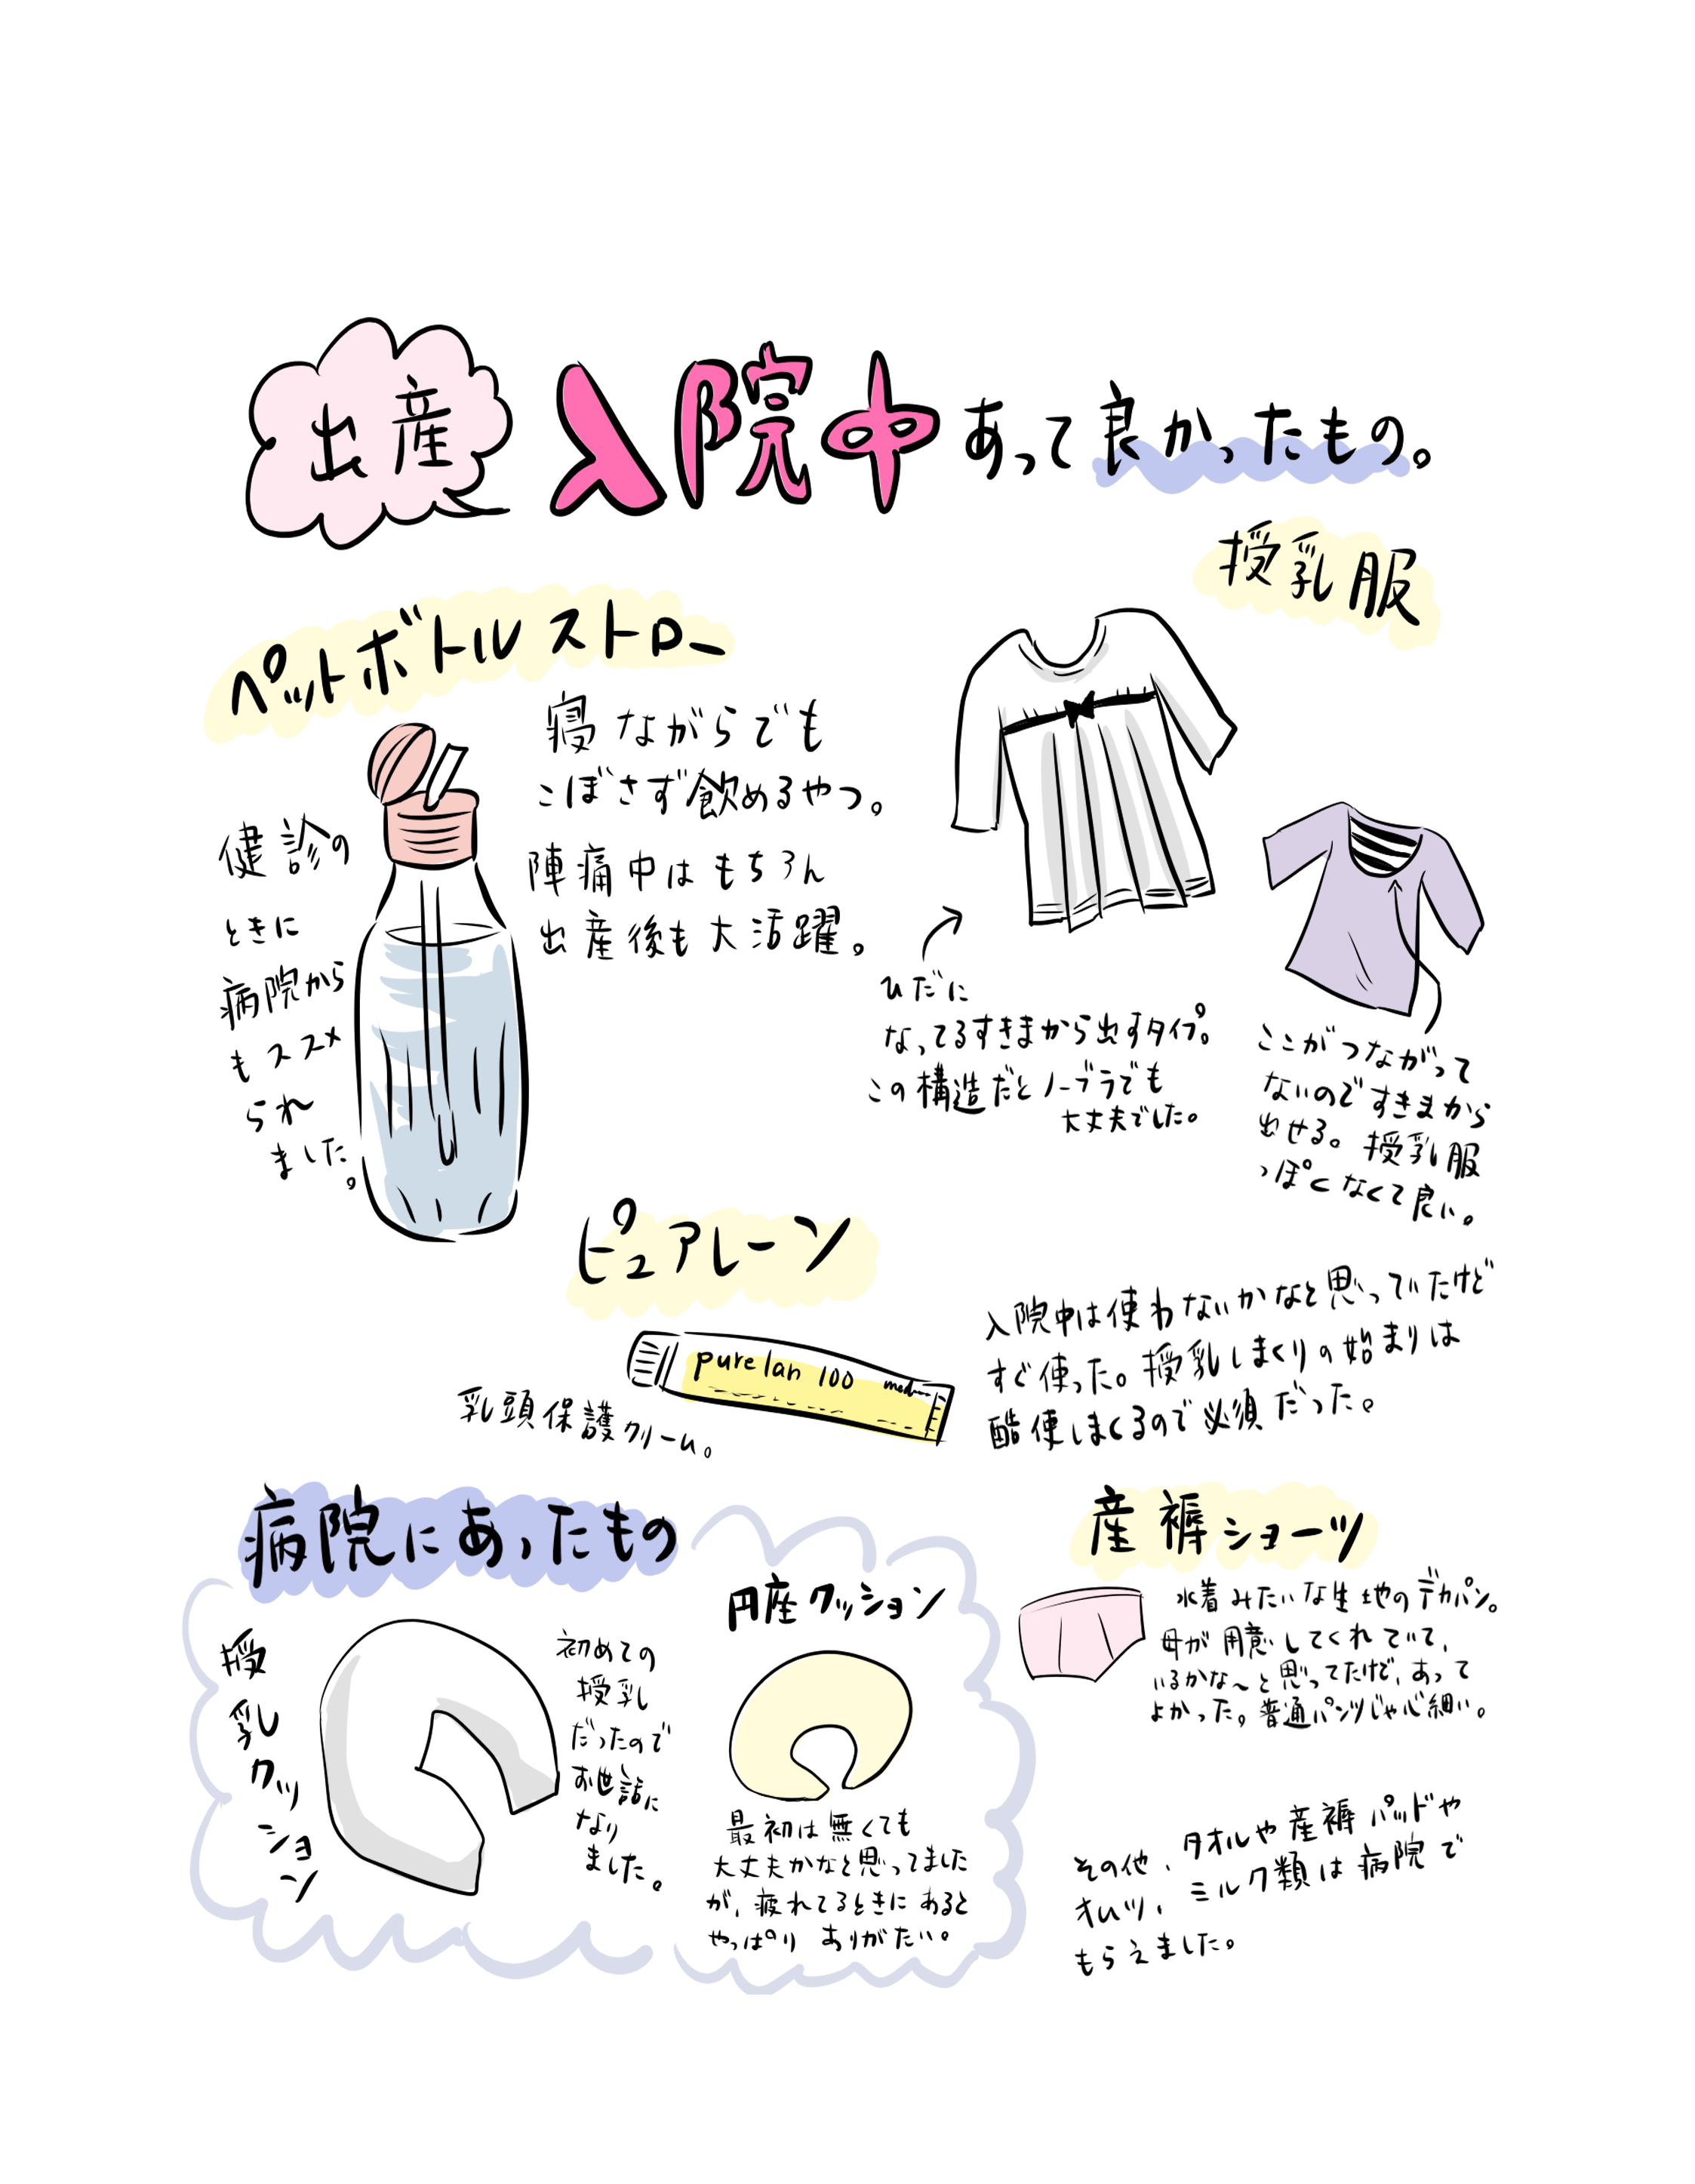 出産
入院中あって良かったもの。
ペットボトルストロー
寝ながらでも
こぼさず飲めるやつ。
陣痛中はもちろん
出産後も大活躍。
健診の
ときに
病院から
もススメ
られ
ました。
授乳服
ひだに
なってるすきまから出すタイプ。
この構造だとノーブラでも
大丈夫でした。
ここがつながって
ないのですきまから
出せる。授乳服
っぽくなくて良い。
ピュアレーン
purelan 100
乳頭保護クリーム。
入院中は使わないかなと思っていたけど
すぐ使った。授乳しまくりの始まりは
酷使しまくるので必須だった。
病院にあったもの
授乳クッション
初めての
授乳
だったので
お世話に
なり
ました。
円座クッション
最初は無くても
大丈夫かなと思ってました
が、疲れてるときにあると
やっぱりありがたい。
産褥ショーツ
水着みたいな生地のデカパン。
母が用意してくれていて、
いるかな〜と思ってたけど、あって
よかった。普通パンツじゃ心細い。
その他、タオルや産褥パッドや
オムツ、ミルク類は病院で
もらえました。